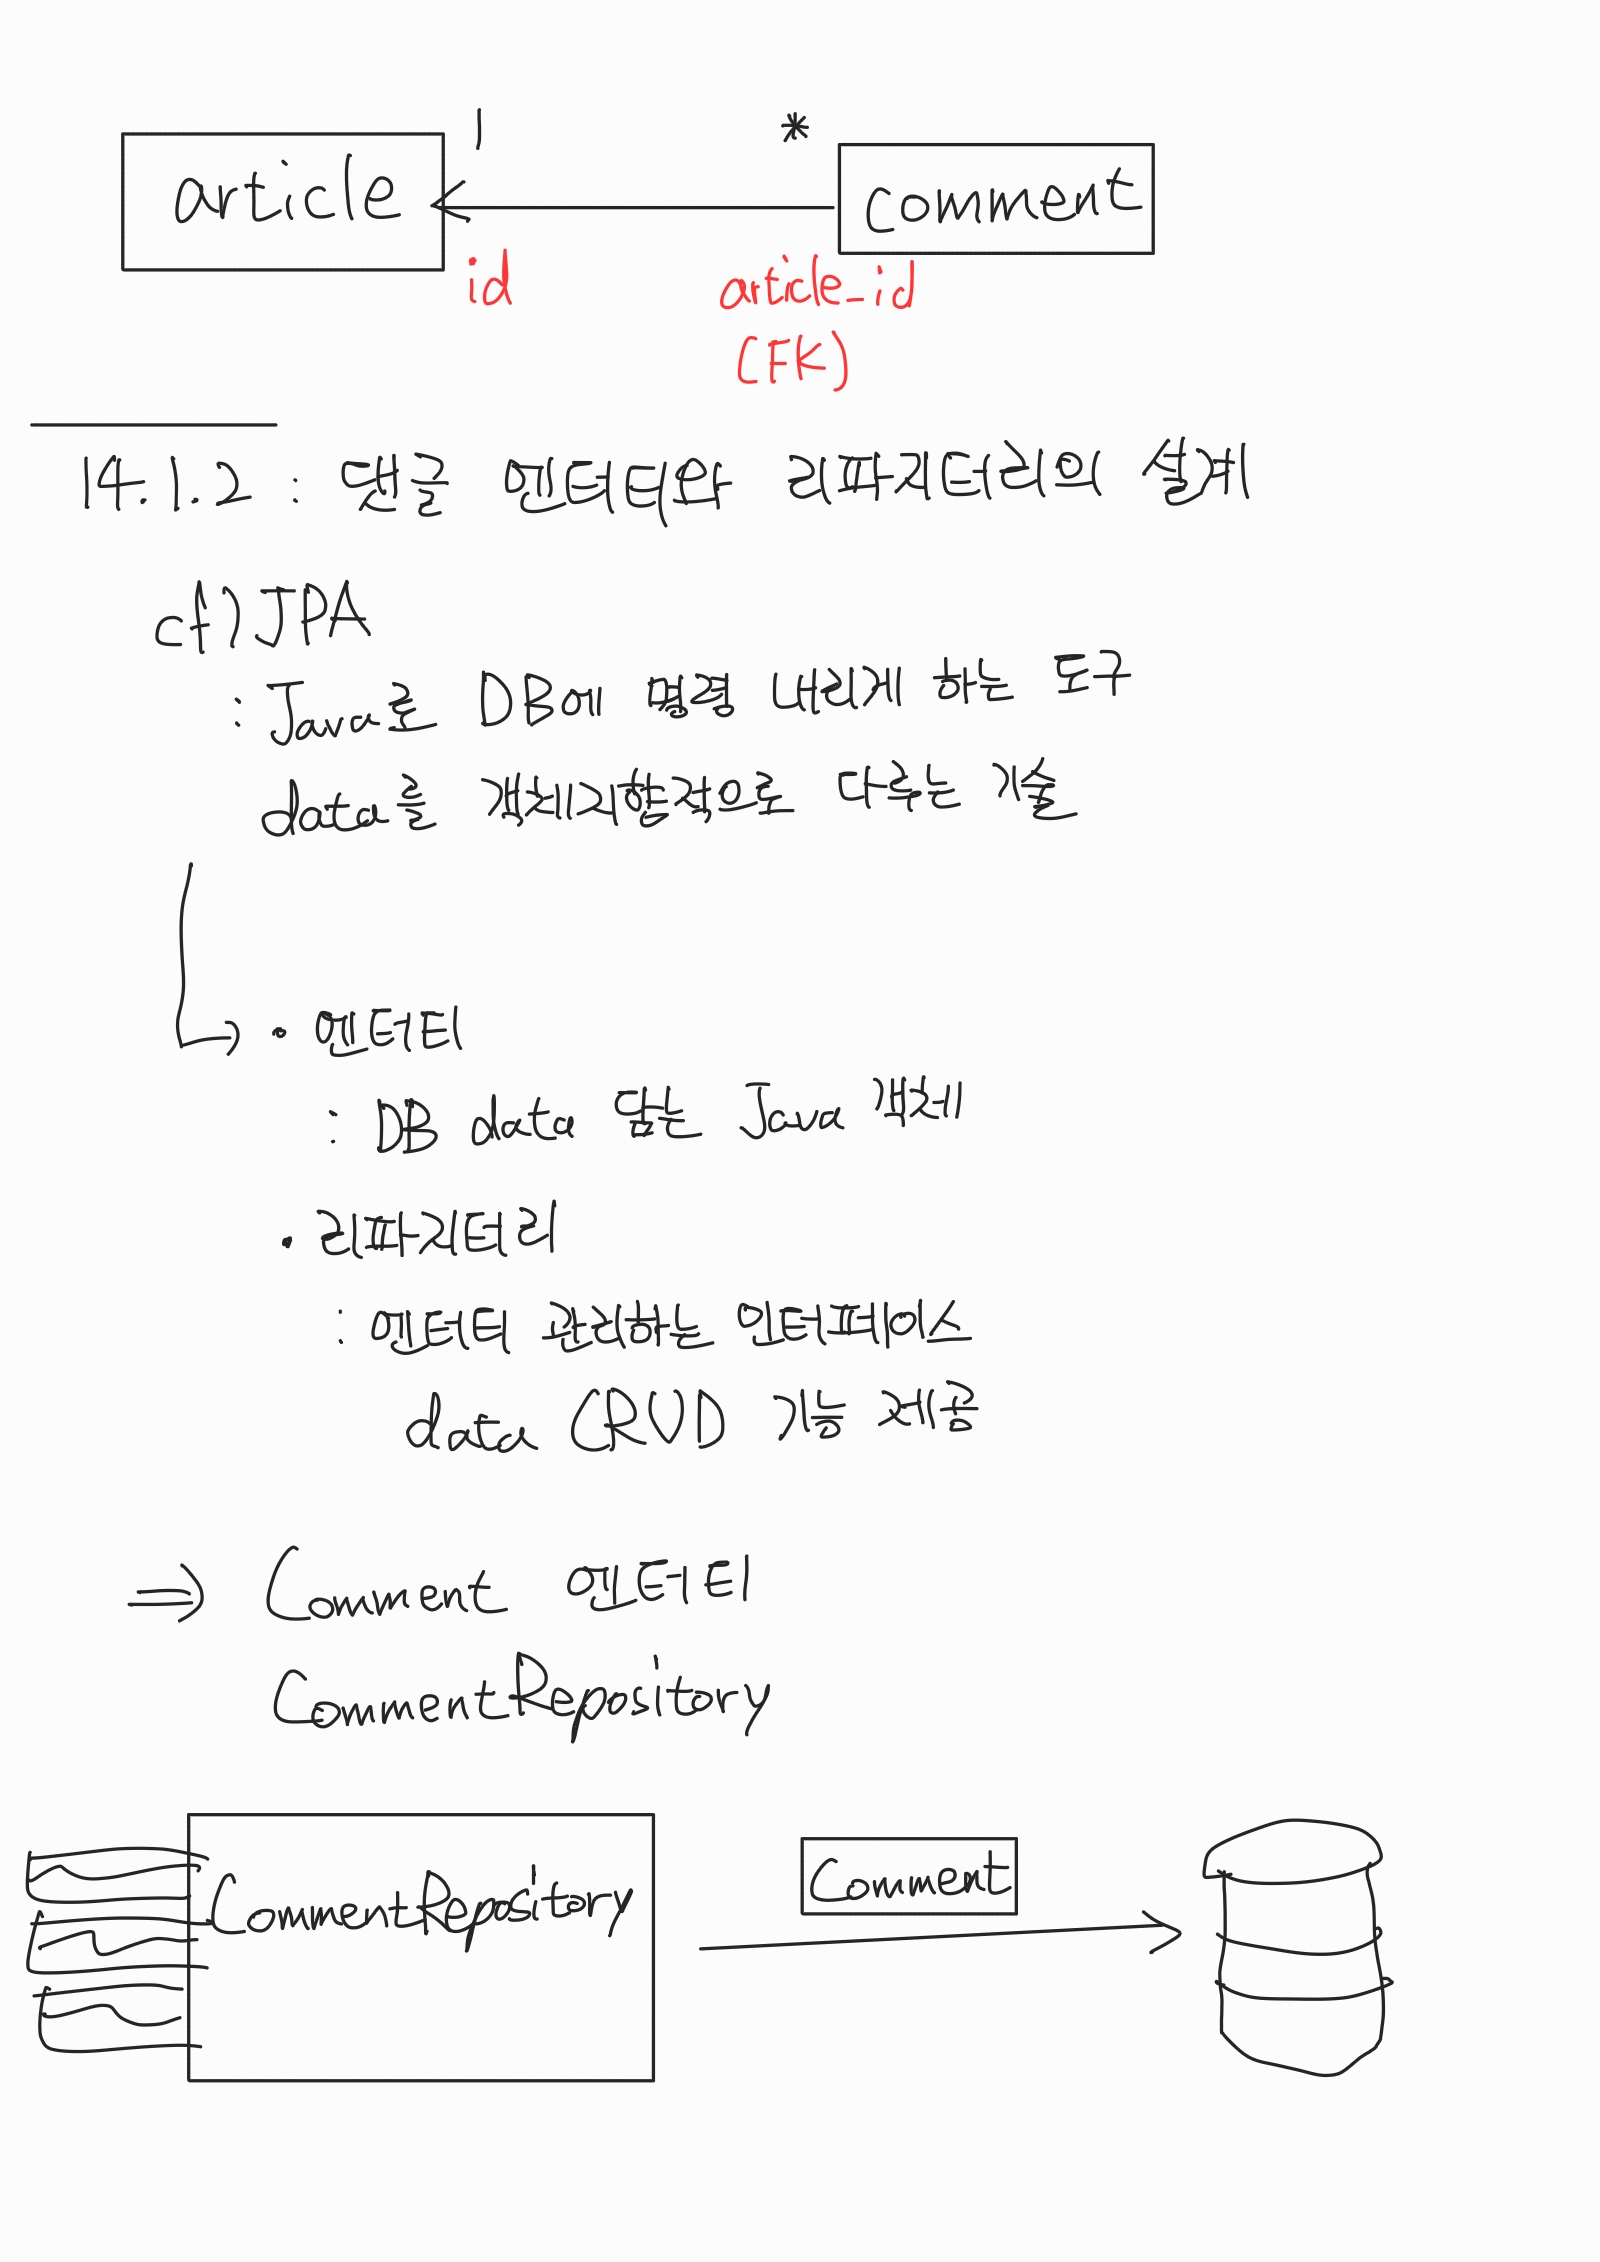 1 *
article comment
id article_id
(FK)
14.1.2 : 댓글 엔터티와 리파지터리의 설계
cf) JPA
: Java로 DB에 명령 내리게 하는 도구
data를 객체지향적으로 다루는 기술
• 엔터티
: DB data 담는 Java 객체
• 리파지터리
: 엔터티 관리하는 인터페이스
data CRUD 기능 제공
⇒ Comment 엔터티
CommentRepository
CommentRepository Comment